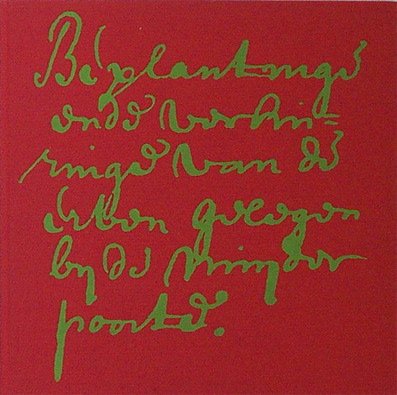 Beplantinge
ende verhuu=
ringe van de
erven gelegen
by de Muyder
poorte.